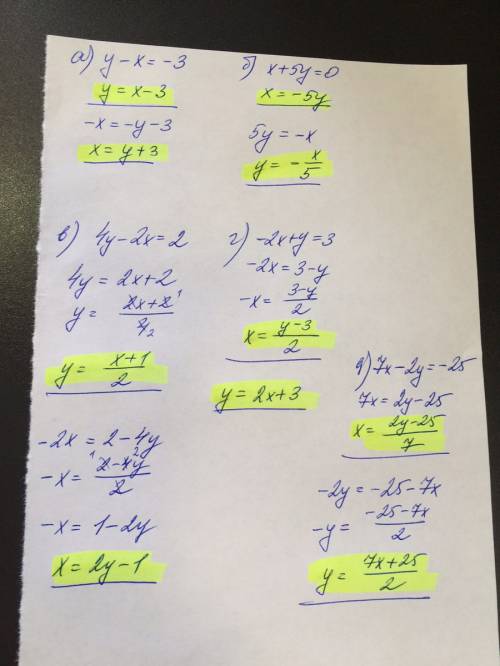 а) y - x = -3
y = x - 3
-x = -y - 3
x = y + 3
б) x + 5y = 0
x = -5y
5y = -x
y = - x/5
в) 4y - 2x = 2
4y = 2x + 2
y = (2x + 2)/4
y = (x + 1)/2
-2x = 2 - 4y
-x = (2 - 4y)/2
-x = 1 - 2y
x = 2y - 1
г) -2x + y = 3
-2x = 3 - y
-x = (3 - y)/2
x = (y - 3)/2
y = 2x + 3
д) 7x - 2y = -25
7x = 2y - 25
x = (2y - 25)/7
-2y = -25 - 7x
-y = (-25 - 7x)/2
y = (7x + 25)/2